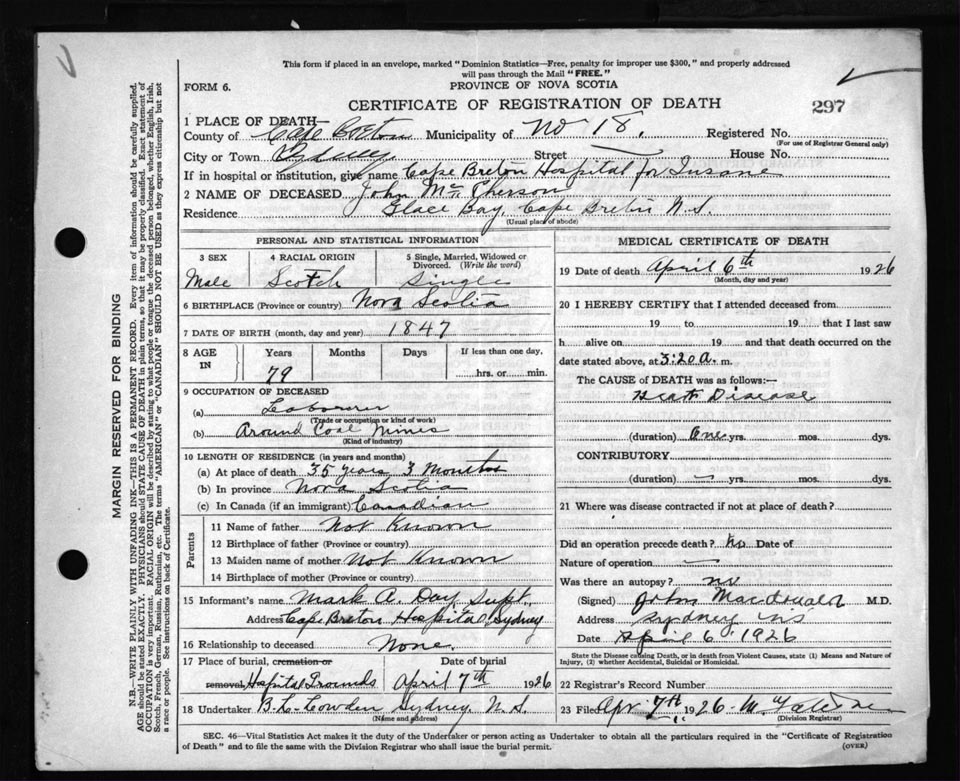 This form if placed in an envelope, marked "Dominion Statistics—Free, penalty for improper use $300," and properly addressed
will pass through the Mail "FREE."
FORM 6.
PROVINCE OF NOVA SCOTIA
CERTIFICATE OF REGISTRATION OF DEATH
297
1 PLACE OF DEATH—
County of Cape Breton Municipality of No 18. Registered No.
(For use of Registrar General only)
City or Town Sydney Street House No.
If in hospital or institution, give name Cape Breton Hospital for Insane
2 NAME OF DECEASED John Mc Pherson
Residence Glace Bay, Cape Breton N.S.
(Usual place of abode)
PERSONAL AND STATISTICAL INFORMATION
3 SEX 4 RACIAL ORIGIN 5 Single, Married, Widowed or
Divorced. (Write the word)
Male Scotch Single
6 BIRTHPLACE (Province or country) Nova Scotia
7 DATE OF BIRTH (month, day and year) 1847
8 AGE IN Years Months Days If less than one day,
79 hrs. or min.
9 OCCUPATION OF DECEASED
(a) Laborer
(Trade or occupation or kind of work)
(b) Around Coal Mines
(Kind of industry)
10 LENGTH OF RESIDENCE (in years and months)
(a) At place of death 35 years 3 Months
(b) In province Nova Scotia
(c) In Canada (if an immigrant) Canadian
Parents
11 Name of father Not Known
12 Birthplace of father (Province or country)
13 Maiden name of mother Not Known
14 Birthplace of mother (Province or country)
15 Informant's name Mark A. Day, Supt.,
Address Cape Breton Hospital Sydney
16 Relationship to deceased None.
17 Place of burial, cremation or Date of burial
removal, Hospital Grounds April 7th 1926
18 Undertaker B.L. Cowden Sydney N.S.
(Name and address)
MEDICAL CERTIFICATE OF DEATH
19 Date of death April 6th 1926
(Month, day and year)
20 I HEREBY CERTIFY that I attended deceased from
19 to 19 that I last saw
h alive on 19 and that death occurred on the
date stated above, at 3:20 a. m.
The CAUSE of DEATH was as follows:—
Heart Disease
(duration) One yrs. mos. dys.
CONTRIBUTORY
(duration) yrs. mos. dys.
21 Where was disease contracted if not at place of death?
Did an operation precede death? No Date of
Nature of operation
Was there an autopsy? no
(Signed) John Macdonald M.D.
Address Sydney NS
Date April 6 1926
State the Disease causing Death, or in death from Violent Causes, state (1) Means and Nature of
Injury, (2) whether Accidental, Suicidal or Homicidal.
22 Registrar's Record Number
23 Filed Apr 7th 1926
(Division Registrar)
SEC. 46—Vital Statistics Act makes it the duty of the Undertaker or person acting as Undertaker to obtain all the particulars required in the "Certificate of Registration
of Death" and to file the same with the Division Registrar who shall issue the burial permit.
(OVER)
MARGIN RESERVED FOR BINDING
N.B.—WRITE PLAINLY WITH UNFADING INK—THIS IS A PERMANENT RECORD. Every item of information should be carefully supplied.
AGE should be stated EXACTLY. PHYSICIANS should STATE CAUSE OF DEATH in plain terms, so that it may be properly classified. Exact statement of
OCCUPATION is very important. RACIAL ORIGIN will be described by stating to what people or tongue the deceased person belonged, whether English, Irish,
Scotch, French, German, Russian, Ruthenian, etc. The terms "AMERICAN" or "CANADIAN" SHOULD NOT BE USED as they express citizenship but not
a race or people. See instructions on back of Certificate.